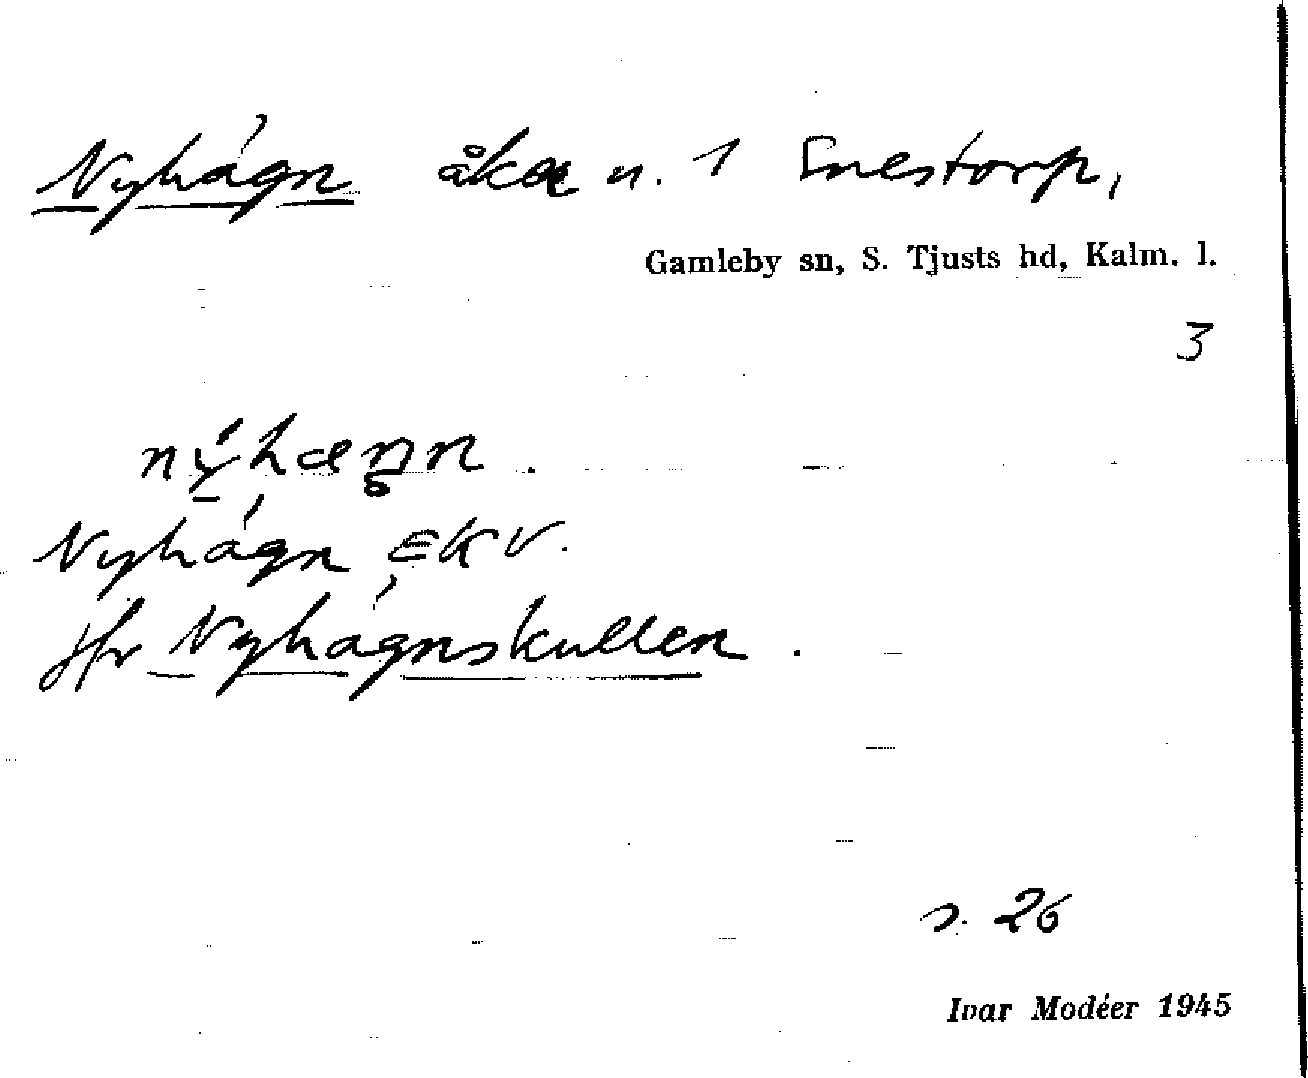 Nyhágn åker n. 1 Snestorp,
Gamleby sn, S. Tjusts hd, Kalm. l.
3
Nyhágn EKV.
Jfr Nyhágnskullen.
s. 26
Ivar Modéer 1945